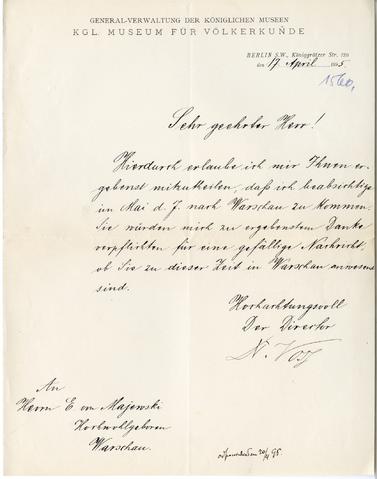 GENERAL-VERWALTUNG DER KÖNIGLICHEN MUSEEN
KGL. MUSEUM FÜR VÖLKERKUNDE
BERLIN S.W., Königgrätzer Str. 120
den 17 April 1895.
1560,
Sehr geehrter Herr!
Hierdurch erlaube ich mir Ihnen er-
gebenst mitzuteilen, daß ich beabsichtige
im Mai d. J. nach Warschau zu kommen.
Sie würden mich zu ergebenstem Danke
verpflichten für eine gefällige Nachricht,
ob Sie zu dieser Zeit in Warschau anwesend
sind.
Hochachtungsvoll
Der Director
An
Herrn E von Majewski
Hochwohlgeboren
Warschau.
95.